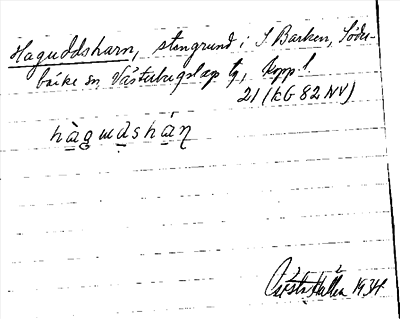 Haguddsharn, stengrund i S Barken, Söder-
bärke sn Västerbergslags tg, Kopp l.
21 (KG 82 NV)
hàgudshán
Gösta Hallin 1934